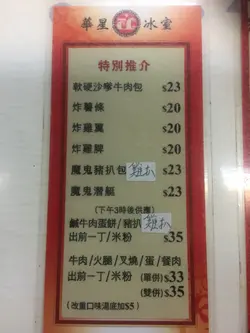 華星冰室
特別推介
軟硬沙嗲牛肉包 $23
炸薯條 $20
炸雞翼 $20
炸雞脾 $20
魔鬼豬扒包 雞扒 $23
魔鬼潛艇 $23
(下午3時後供應)
鹹牛肉蛋餅/豬扒 雞扒
出前一丁/米粉 $35
牛肉/火腿/叉燒/蛋/餐肉
出前一丁/米粉 (單併) $33
(雙併) $35
(改重口味湯底加$5)